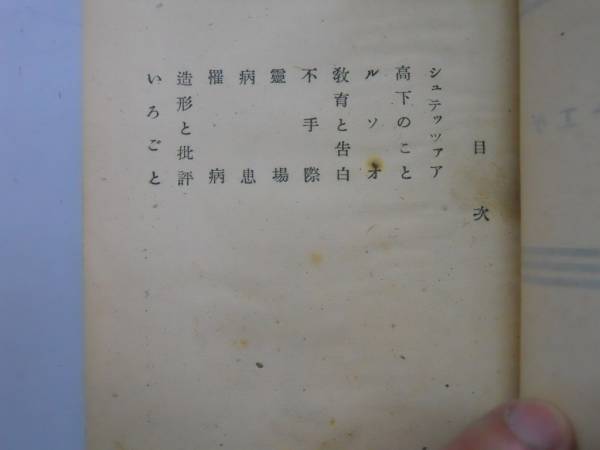 目次
シュテッツアア
高下のこと
ルソオ
教育と告白
不手際
靈場
病患
罹病
造形と批評
いろごと